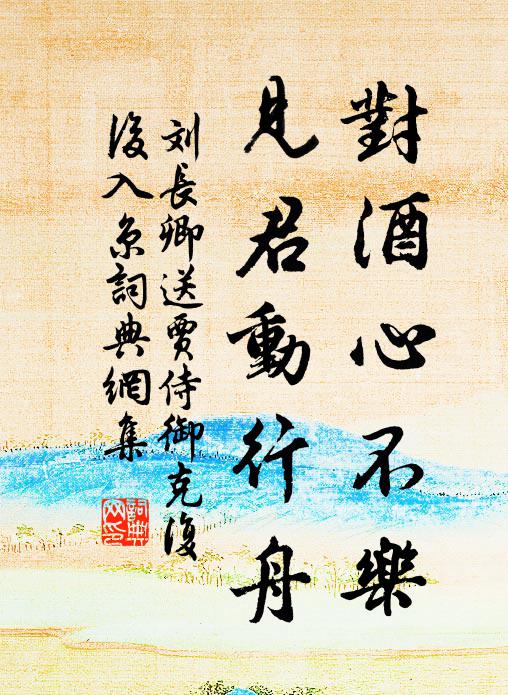 對酒心不樂
見君動行舟
刘長卿送賈侍御克復
後入京詞典網集
詞典网印